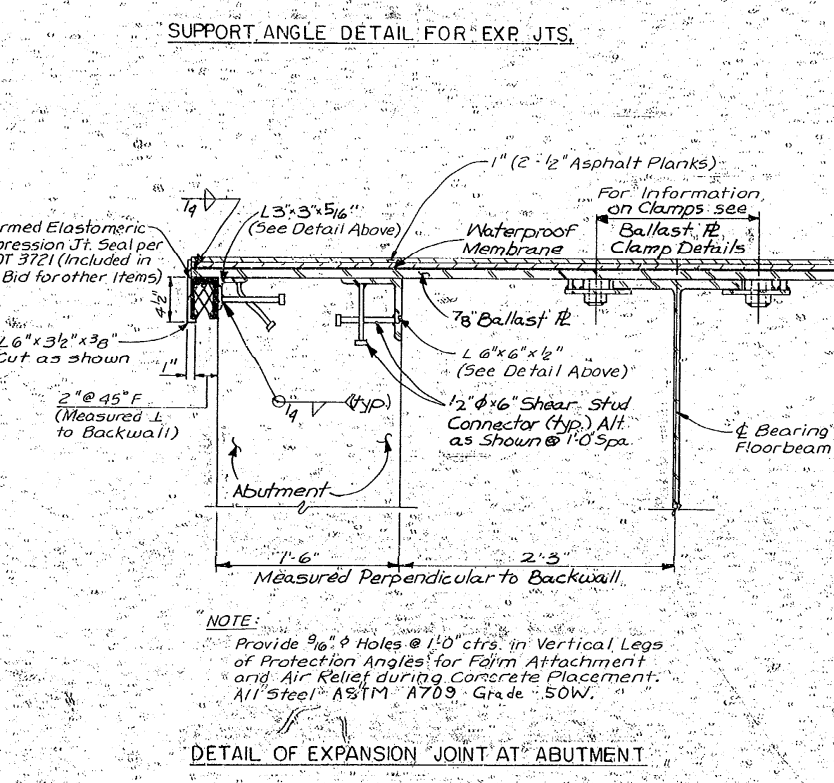 SUPPORT ANGLE DETAIL FOR EXP. JTS.
1" (2 - 1/2" Asphalt Planks)
For Information
on Clamps see
Ballast PL
Clamp Details
1/4
L 3" x 3" x 5/16"
(See Detail Above)
Waterproof
Membrane
rmed Elastomeric
pression Jt. Seal per
OT 3721 (Included in
Bid for other Items)
4 1/2"
7/8" Ballast PL
L 6" x 3 1/2" x 3/8"
Cut as shown
1"
L 6" x 6" x 1/2"
(See Detail Above)
2" @ 45° F
(Measured ⊥
to Backwall)
1/4
(typ.)
1/2" ϕ x 6" Shear Stud
Connector (typ.) Alt.
as Shown @ 1'-0" Spa.
℄ Bearing
Floorbeam
Abutment
1'-6"
2'-3"
Measured Perpendicular to Backwall
NOTE:
Provide 9/16" ϕ Holes @ 1'-0" ctrs. in Vertical Legs
of Protection Angles for Form Attachment
and Air Relief during Concrete Placement.
All Steel ASTM A709 Grade 50W.
DETAIL OF EXPANSION JOINT AT ABUTMENT